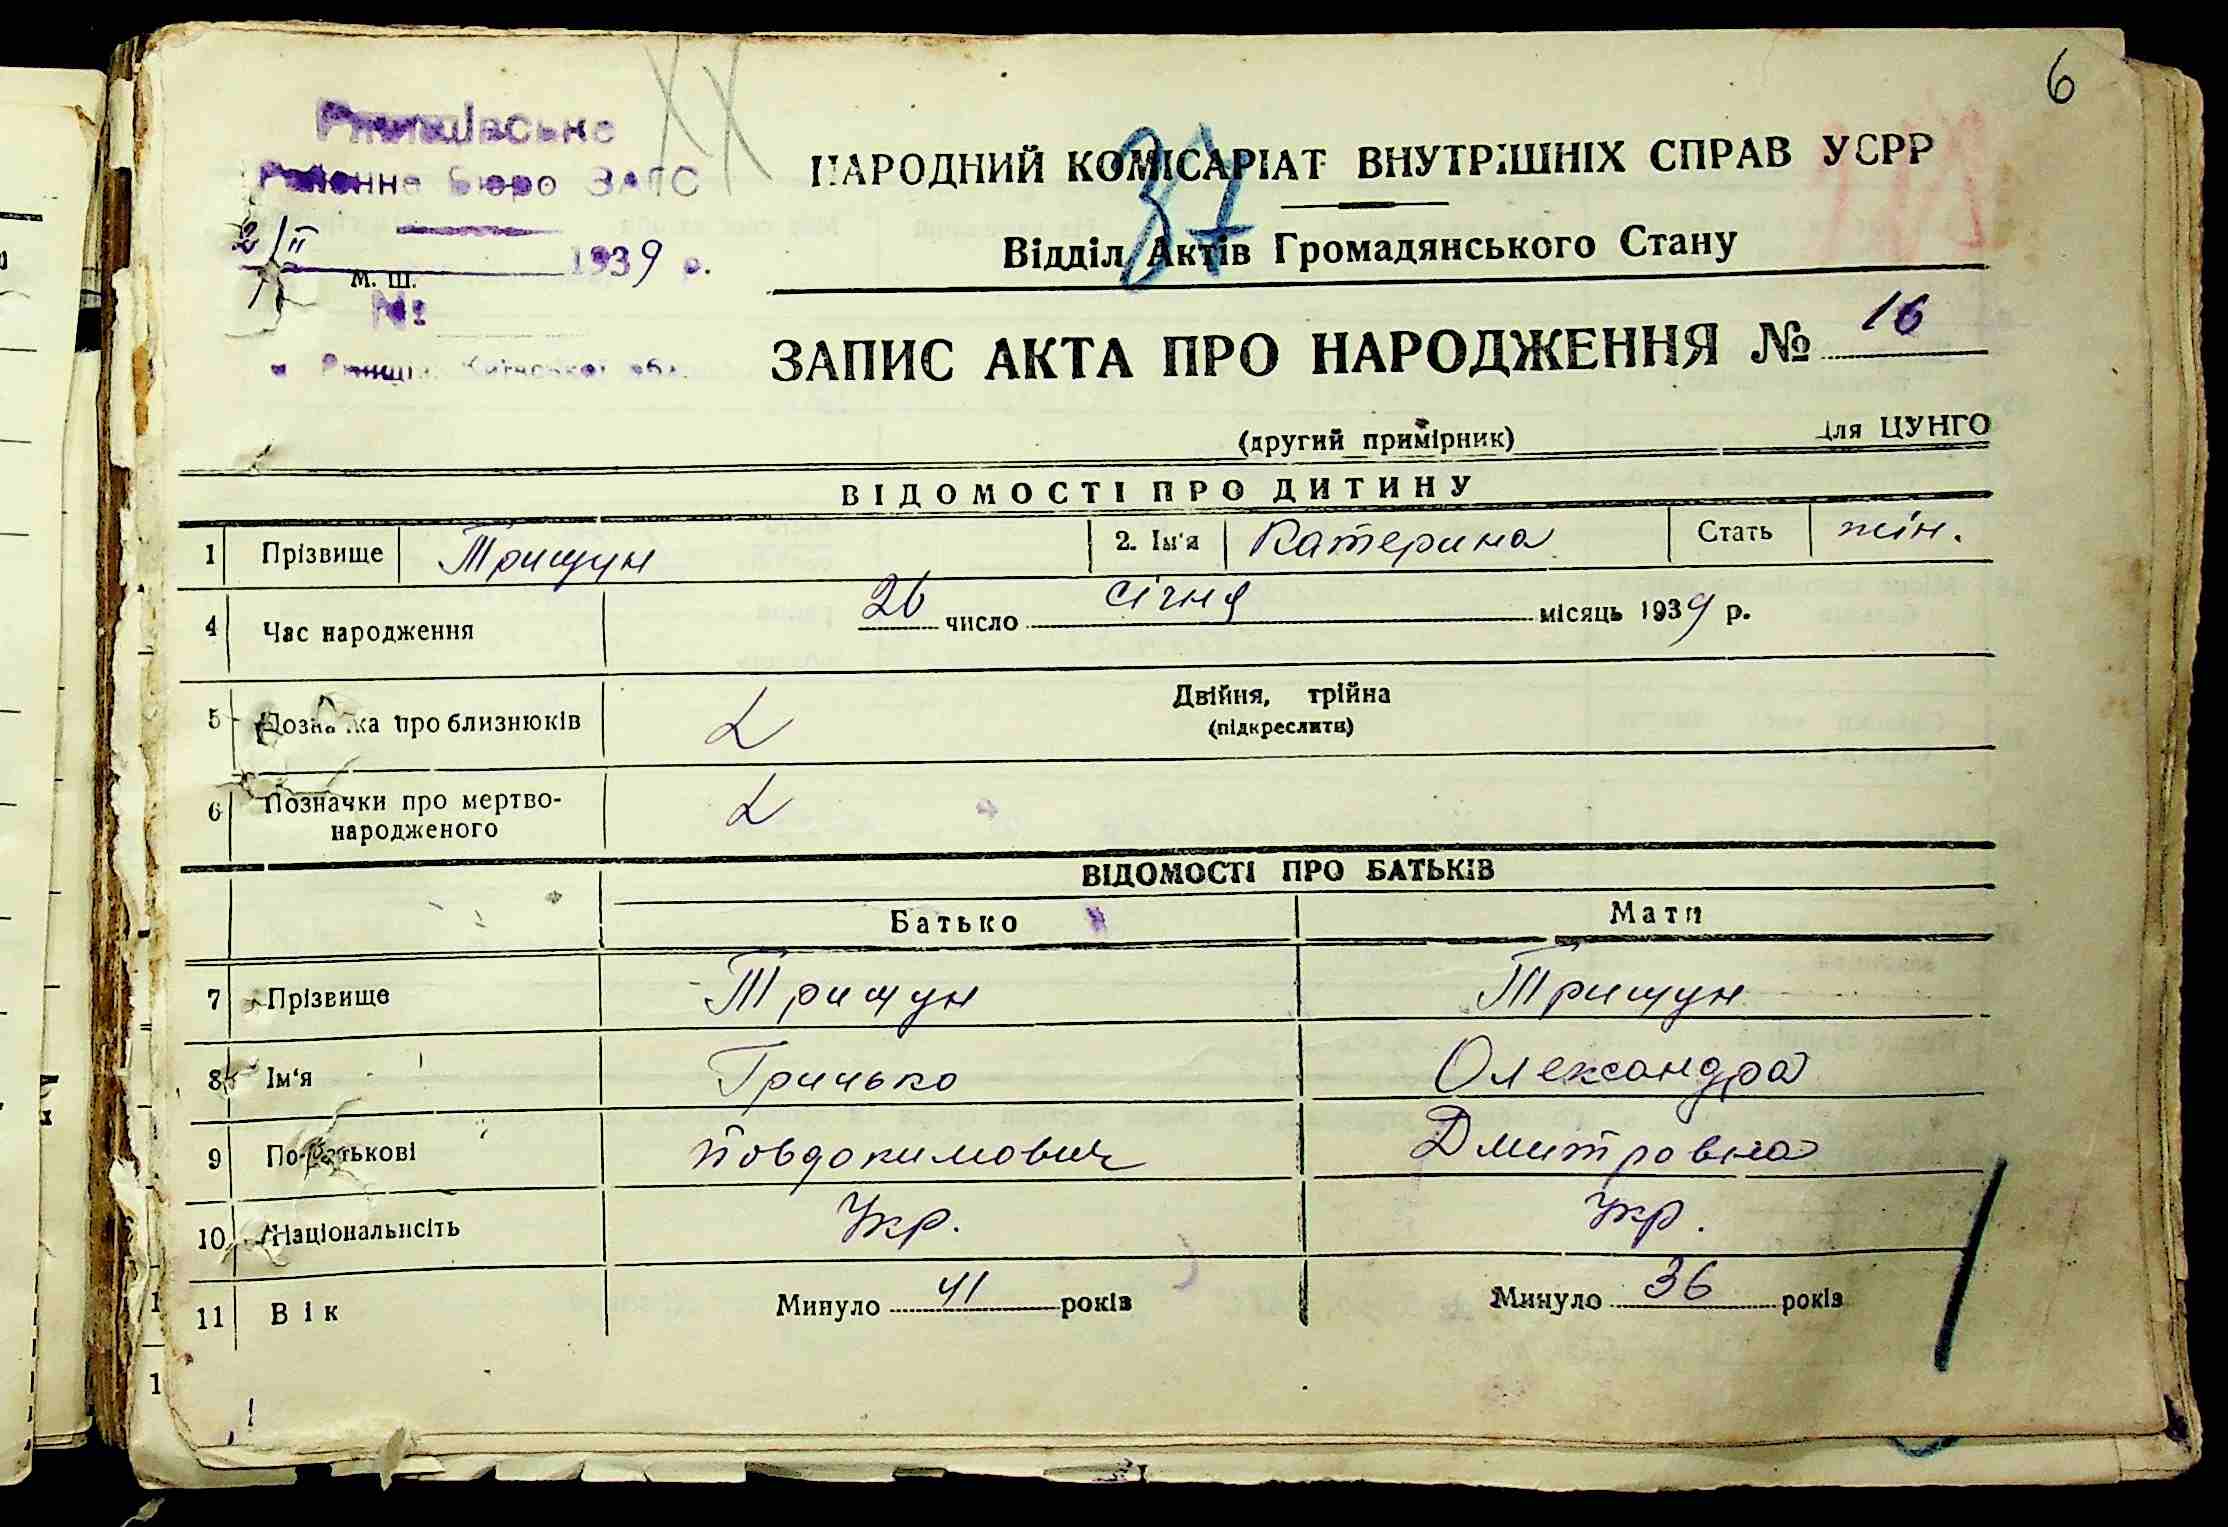 6
Ржищівське
Районне Бюро ЗАГС
2/II 1939 р.
М. Ш.
№
м. Ржищів, Київської обл.
37
НАРОДНИЙ КОМІСАРІАТ ВНУТРІШНІХ СПРАВ УСРР
Відділ Актів Громадянського Стану
ЗАПИС АКТА ПРО НАРОДЖЕННЯ № 16
(другий примірник) Для ЦУНГО
ВІДОМОСТІ ПРО ДИТИНУ
1 Прізвище Трищун 2. Ім'я Катерина Стать жін.
4 Час народження 26 число січня місяць 1939 р.
5 Позначка про близнюків Двійня, трійна
(підкреслити)
6 Позначки про мертво-
народженого
ВІДОМОСТІ ПРО БАТЬКІВ
Батько Мати
7 Прізвище Трищун Трищун
8 Ім'я Грицько Олександра
9 По-батькові Повдокимович Дмитровна
10 Національність Укр. Укр.
11 Вік Минуло 41 років Минуло 36 років